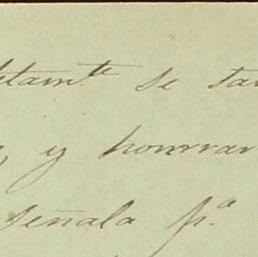 ltam.te se ta
, y honrrar
señala p.a